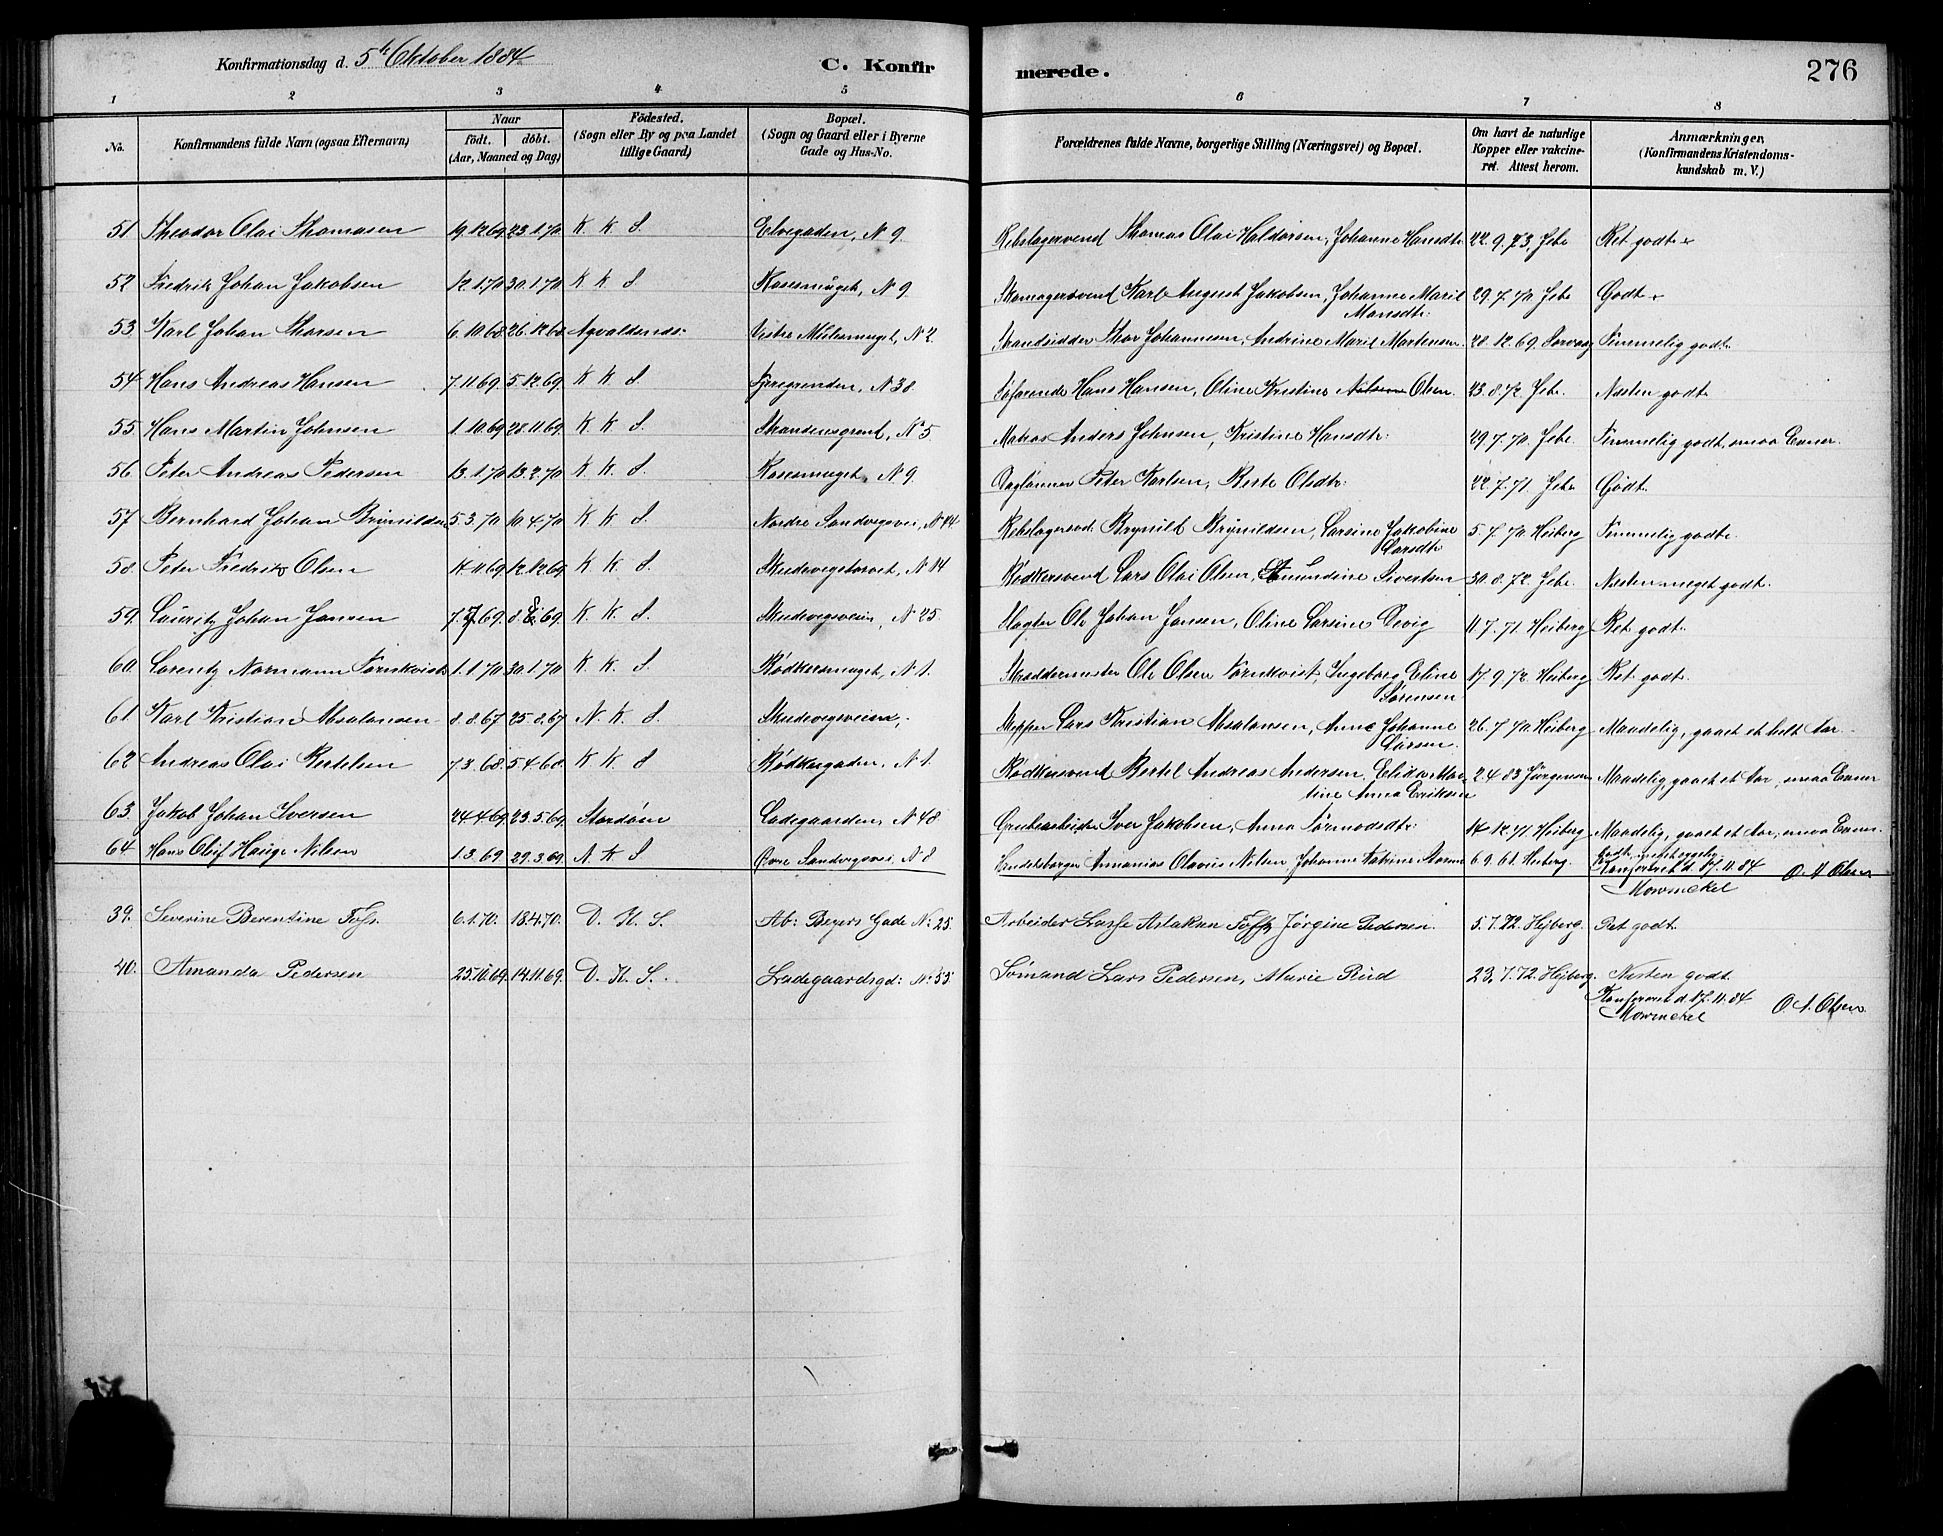 Konfirmationsdag d. 5te Oktober 1884 C. Konfirmerede. 276
1 2 3 4 5 6 7 8
No. Konfirmandens fulde Navn (ogsaa Efternavn) Naar födt. döbt. (Aar, Maaned og Dag) Födested. (Sogn eller By og paa Landet tillige Gaard) Bopæl. (Sogn og Gaard eller i Byerne Gade og Hus-No. Forældrenes fulde Navne, borgerlige Stilling (Næringsvei) og Bopæl. Om havt de naturlige Kopper eller vakcineret. Attest herom. Anmærkninger, (Konfirmandens Kristendomskundskab m. V.)
51. Theodor Olai Thomasen 19.12.69 23.1.70 K. K. S. Elvegaden, N 9. Rebslagersvend Thomas Olai Haldorsen, Johanne Hansdtr. 22.9.73, Jebe Ret godt.
52. Fredrik Johan Jakobsen 12.1.70 30.1.70 K. K. S. Rosesmuget, N 9. Skomagersvend Karl August Jakobsen, Johanne Marie Monsdtr. 29.7.70. Jebe Godt.
53. Karl Johan Thorsen 6.10.68 26.12.68 Agvaldsnæs. Vestre Mølesmuget, N 2. Strandsidder Thor Johannesen, Andrine Marie Martensen. 28.12.69 Temmelig godt.
54. Hans Andreas Hansen 7.11.69. 5.12.69. K. K. S. N 38. Søfarende Hans Hansen, Oline Kristine Olsen. 23.8.72. Jebe. Næsten godt.
55. Hans Martin Johnsen 1.10.69 28.11.69. K. K. S. N 5. Matros Anders Johnsen, Kristine Hansdtr. 29.7.70. Jebe Temmelig godt, smaa Evner.
56. Peter Andreas Pedersen 13.1.70 13.2.70 K. K. S. Rosesmuget, N 9. Daglønner Peter Karlsen, Berte Olsdtr. 22.7.71. Jebe Godt.
57. Bernhard Johan Brynildsen 5.3.70 10.4.70 K. K. S. Nordre Sandvigsvei, N 44 Rebslagersvd. Brynild Brynildsen, Larsine Jakobine Larsdtr. 5.7.70. Heiberg Temmelig godt.
58. Peter Fredrik Olsen 14.11.69 12.12.69 K. K. S. Skudevigstorvet, N 14 Bødkersvend Lars Olai Olsen, Amundine Sivertsen 30.8.72. Jebe. Næsten meget godt.
59. Lauritz Johan Jansen 7.7.69. 8.8.69. K. K. S. Skudevigsveien, N 25. Slagter Ole Johan Jansen, Oline Larsine Devig 11.7.71. Heiberg Ret godt.
60. Lorentz Normann Tørnkvist 1.1.70 30.1.70 K. K. S. Bødkersmuget, N 1. Skræddermester Ole Olsen Tørnkvist, Ingeborg Eline Sørensen 17.9.72. Heiberg Ret godt.
61. Karl Kristian Absalonsen 8.8.67 25.8.67 N. K. S. Skudevigsveien, Skipper Lars Kristian Absalonsen, Anne Johanne Larsen. 26.7.70. Heiberg Maadelig, gaaet et helt Aar.
62. Andreas Olai Bertelsen 7.3.68. 5.4.68. K. K. S. Bødkergaden, N 1. Bødkersvend Bertel Andreas Andersen, Elida Martine Anna Eriksen 2.4.83 Jürgensen Maadelig, gaaet et Aar, smaa Evner
63. Jakob Johan Iversen 24.4.69. 23.5.69. Stordøen Ladegaarden, N 48. Grubearbeider Iver Jakobsen, Anna Tormodsdtr. 14.12.71. Heiberg Maadelig, gaaet et Aar, smaa Evner.
64. Hans Oluf Hauge Nilsen 1.3.69. 29.3.69. N. K. S. Øvre Sandvigsvei, N 8 Hendelsborger Annanias Olavus Nilsen, Johanne Katrine 6.9.61. Heiberg.
Konfereret d. 17.11.84 O. A. Olsen
Mowinckel
39. Severine Berentine Foss 6.1.70. 18.4.70. D. K. S. Ab: Beyers Gade No: 25. Arbeider Lasse Aslaksen Foss, Jørgine Pedersen. 5.7.72. Hejberg. Ret godt.
40. Amanda Pedersen 25.10.69. 14.11.69. D. K. S. Ladegaardsgd: No: 53. Sømand Lars Pedersen, Marie Rud 23.7.72. Hejberg. Næsten godt.
Konfereret d. 17.11.84
Mowinckel O. A. Olsen